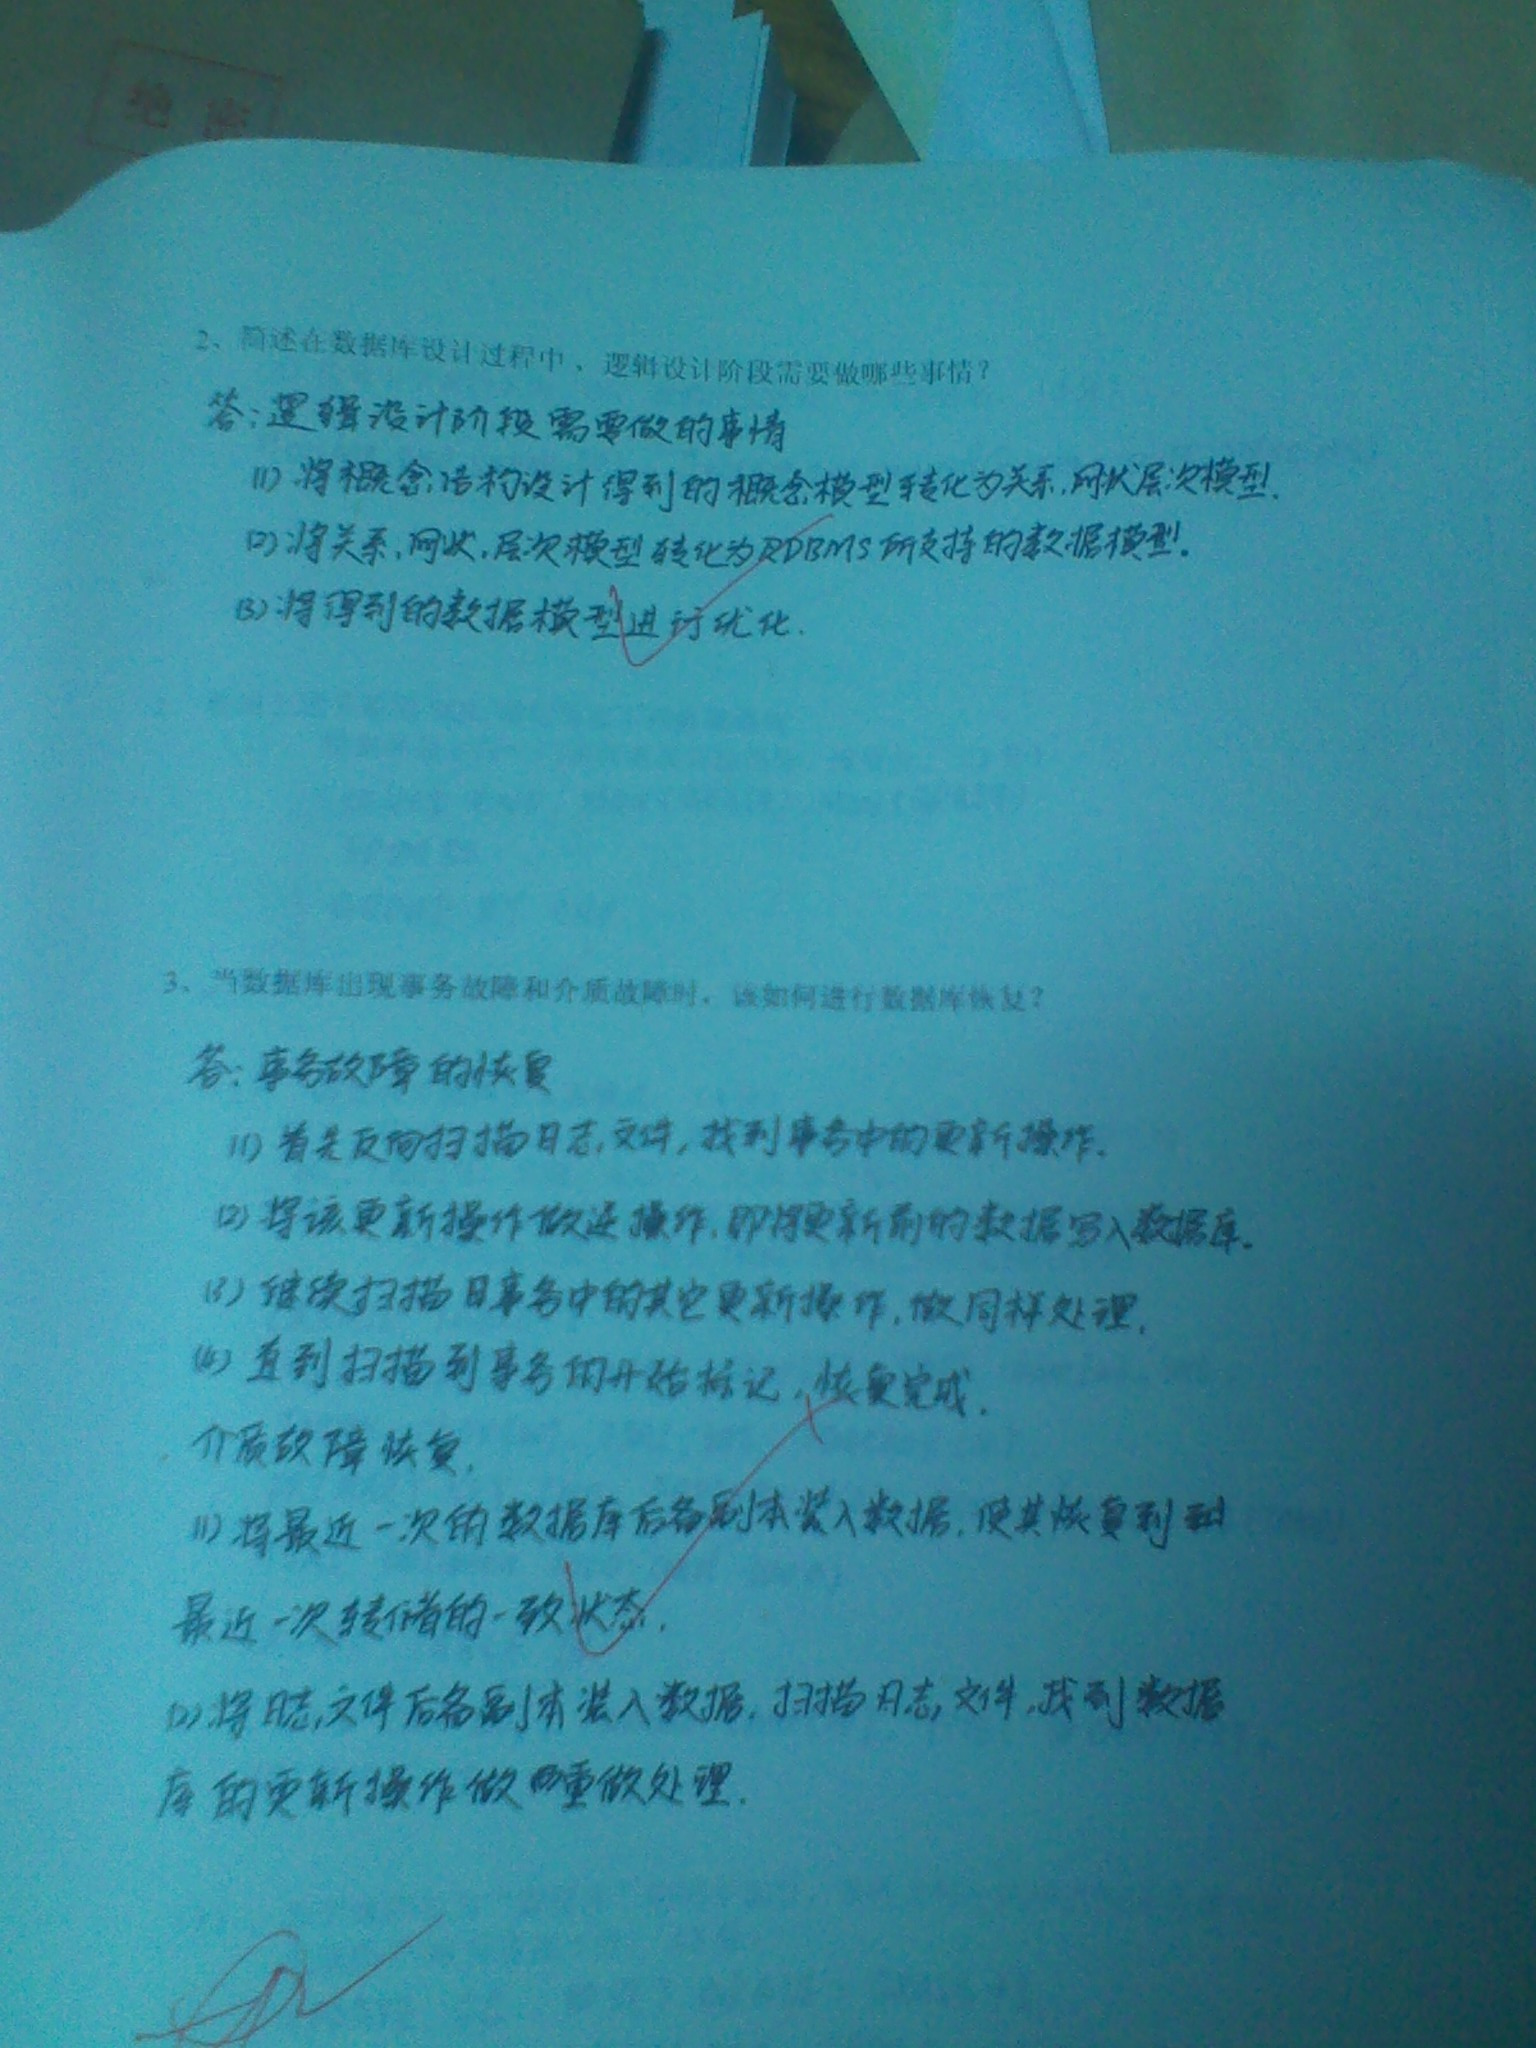 绝 密
2、简述在数据库设计过程中，逻辑设计阶段需要做哪些事情？
答：逻辑设计阶段需要做的事情
(1) 将概念结构设计得到的概念模型转化为关系、网状层次模型.
(2) 将关系、网状、层次模型转化为RDBMS所支持的数据模型.
(3) 将得到的数据模型进行优化.
3、当数据库出现事务故障和介质故障时，该如何进行数据库恢复？
答：事务故障的恢复
(1) 首先反向扫描日志文件，找到事务中的更新操作.
(2) 将该更新操作做逆操作，即将更新前的数据写入数据库.
(3) 继续扫描日事务中的其它更新操作，做同样处理.
(4) 直到扫描到事务的开始标记，恢复完成.
介质故障恢复.
(1) 将最近一次的数据库后备副本装入数据，使其恢复到
最近一次转储的一致状态.
(2) 将日志文件后备副本装入数据，扫描日志文件，找到数据
库的更新操作做重做处理.